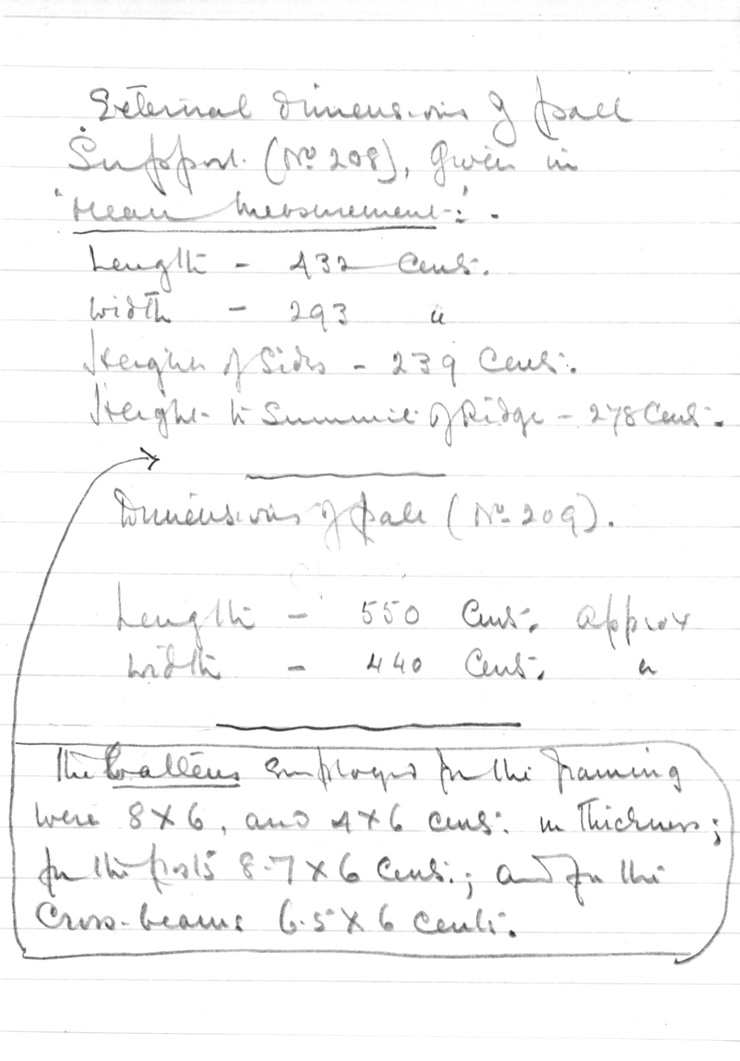 External dimensions of pall
Support. (No 208), given in
'mean measurement:' -
Length - 432 Cents.
Width - 293 "
Height of Sides - 239 Cents.
Height to Summit of Ridge - 278 Cents.
Dimensions of pall (No 209).
Length - 550 Cents. approx
Width - 440 Cents. "
The battens employed for the framing
were 8 x 6, and 4 x 6 cents. in thickness;
for the posts 8.7 x 6 Cents.; and for the
Cross-beams 6.5 x 6 Cents.